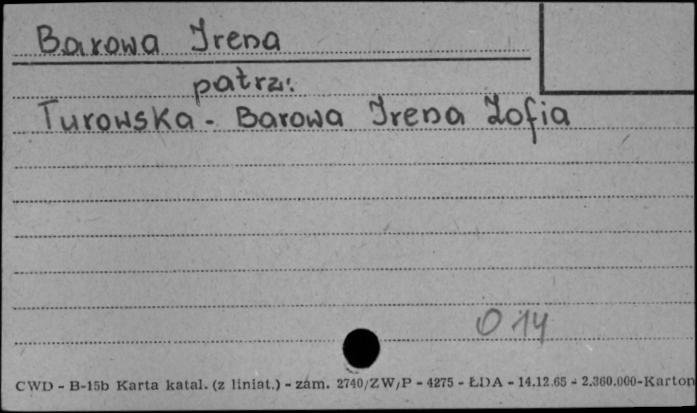 Barowa Irena
patrz:
Turowska - Barowa Irena Zofia
O 14
CWD - B-15b Karta katal. (z liniat.) - zam. 2740/ZW/P - 4275 - ŁDA - 14.12.65 - 2.360.000-Karton